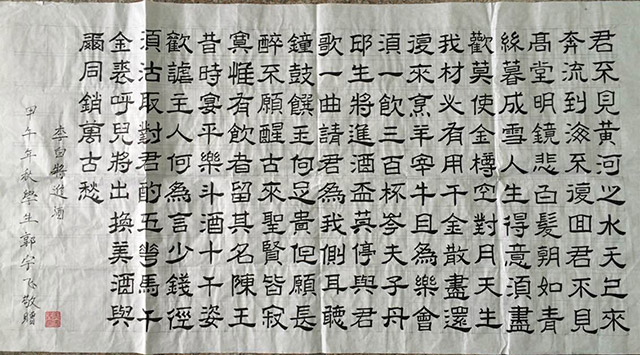 君不見黃河之水天上來
奔流到海不復回君不見
高堂明鏡悲白髮朝如青
絲暮成雪人生得意須盡
歡莫使金樽空對月天生
我材必有用千金散盡還
復來烹羊宰牛且為樂會
須一飲三百杯岑夫子丹
邱生將進酒盃莫停與君
歌一曲請君為我側耳聽
鐘鼓饌玉何足貴但願長
醉不願醒古來聖賢皆寂
寞惟有飲者留其名陳王
昔時宴平樂斗酒十千姿
歡謔主人何為言少錢徑
須沽取對君酌五花馬千
金裘呼兒將出換美酒與
爾同銷萬古愁
李白將進酒
甲午年秋學生郭宇飞敬贈